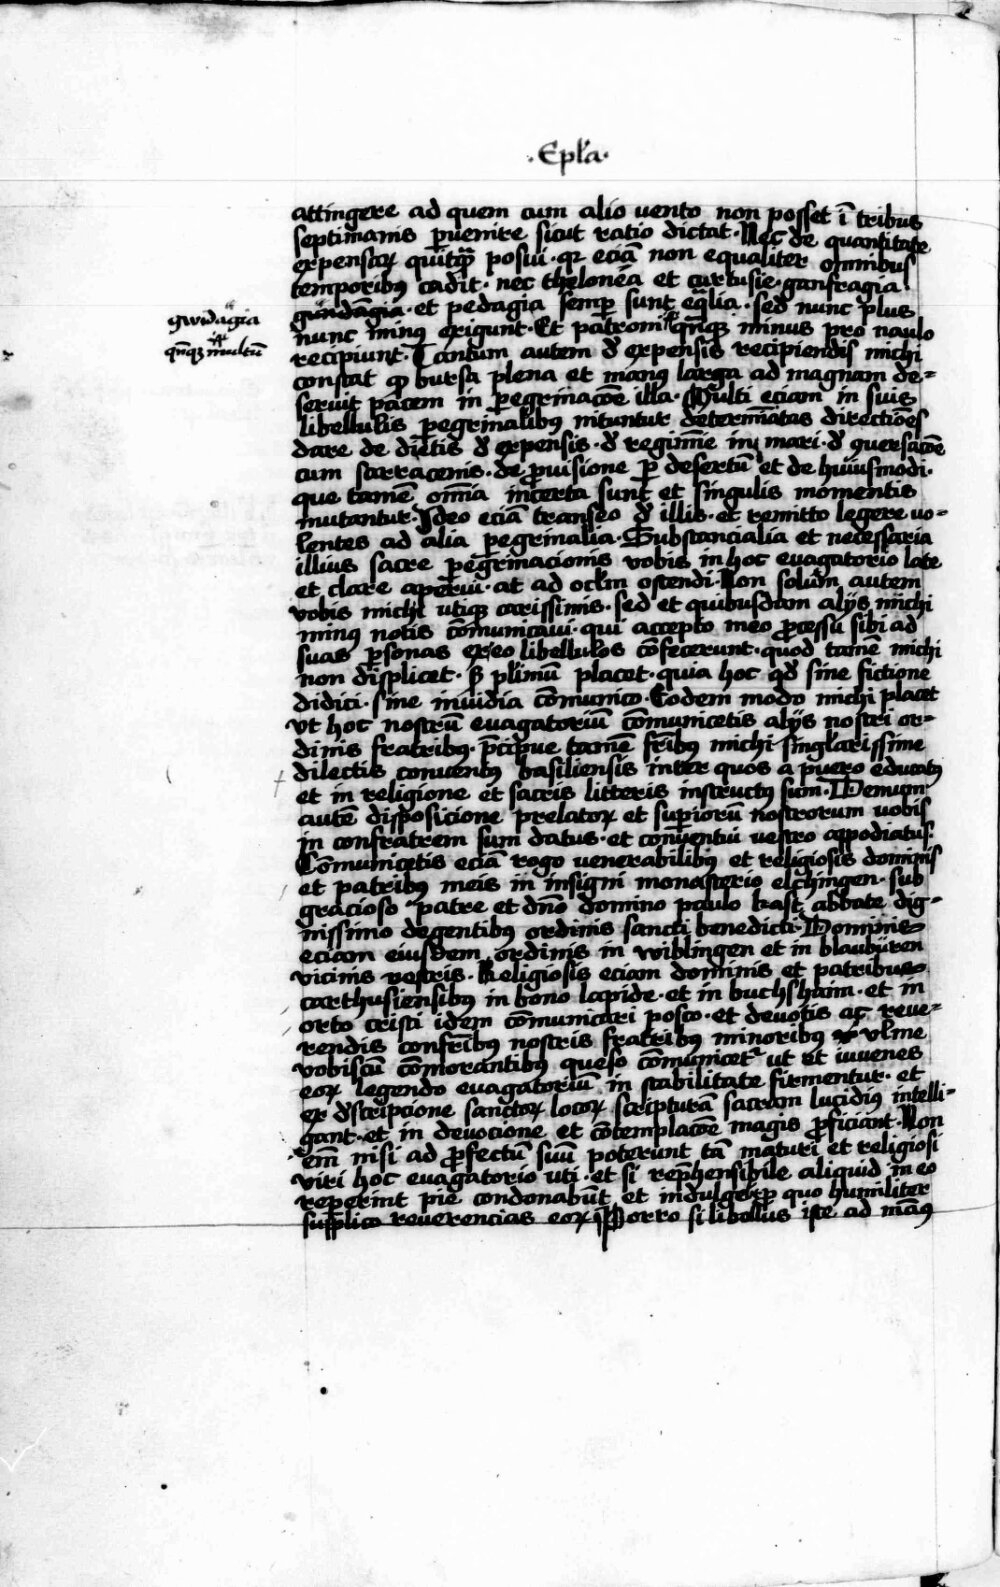 · Epl̄a ·
attingere ad quem cum alio vento non posset ī tribus
septimanis ꝑvenire sicut ratio dictat · Nec de quantitate
expensaꝝ quitq̄ posui · qꝛ eciā non equaliter omnibus
temporibꝰ cadit · nec thelonea et curtusie · ganfragia
guindāgia · et pedagia semꝑ sunt eq̄lia · sed nunc plus
nunc minꝰ exigunt · Et patroni qn̄qꝫ minus pro naulo
recipiunt · Tantum autem de expensis recipiendis michi
constat qꝙ bursa plena et manꝰ larga ad magnam de=
servit pacem in ꝑegrinacōe illa · Multi eciam in suis
libellulis ꝑegrinalibꝰ nituntur determīatas directiōes
dare de dietis de expensis · de regimīe in mari · de ꝯversacōe
cum sarracenis · de ꝓvisione ꝑ desertū et de huiusmodi ·
que tamē om̄ia incerta sunt et singulis momentis
mutantur · Ideo eciā transeo de illis · et remitto legere vo=
lentes ad alia ꝑegrinalia · Substancialia et necessaria
illius sacre ꝑegrinacionis vobis in hoc evagatorio late
et clare aperui · at ad oclm̄ ostendi · Non solum autem
vobis michi utiqꝫ carissimis · sed et quibusdam alijs michi
minꝰ notis cōmunicavi · qui accepto meo ꝓcessu sibi ad
suas ꝑsonas ex eo libellulos cōfecerunt · quod tamē michi
non displicet · sꝫ pl̄imū placet · quia hoc qd̄ sine fictione
didici · sine invidia cōmunico · Eodem modo michi placet
vt hoc nostrū evagatoriū cōmunicetis alijs nostri or=
dinis fratribꝰ · p̄cipue tamē fr̄ibus michi singlarissime
dilectis conventꝰ basiliensis inter quos a puero educatꝰ
et in religione et sacris litteris instructꝰ sum · Demum
autē disposicione prelatoꝝ et suꝑioꝝ nostrorum vobis
in confratrem sum datus · et conventui vestro appodiatus ·
Cōmunicetis eciā rogo venerabilibꝰ et religiosis dominis
et patribꝰ meis in insigni monasterio elchingen · sub
gracioso patre et dn̄o domino paulo kast abbate dig=
nissimo degentibꝰ ordinis sancti benedicti · Dominis
eciam eiusdem ordinis in wiblingen et in blauburen
vicinis vestris · Religiosis eciam dominis et patribus
carthusiensibꝰ in bono lapide · et in buchshaim · et in
orto cristi idem cōmunicari posco · et devotis ac reve=
rendis confr̄ibus nostris fratribꝰ minoribꝰ vlme
vobiscū cōmorantibꝰ queso cōmunicet᷑ ut et iuvenes
eoꝝ legendo evagatoriū in stabilitate firmentur · et
ex descripcione sanctoꝝ locoꝝ scripturā sacram lucidiꝰ intelli=
gant · et in devocione et cōtemplacōe magis ꝓficiant · Non
em̄ nisi ad ꝓfectū suū poterunt tā maturi et religiosi
viri hoc evagatorio uti · et si rep̄hensibile aliquid in eo
reperint pie condonabūt et indulgebūt ꝓ quo humiliter
supplico reverencias eoꝝ Porro si libellus iste ad manꝰ
gwidagia
qn̄qꝫ multū